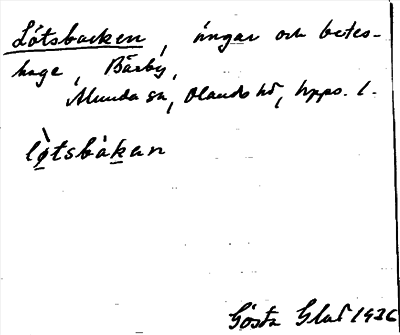 Lötsbacken, ängar och betes-
hage, Bärby,
Munda sn, Olands hd, Upps. l.
lø̀tsbàkan
Gösta Glad 1936